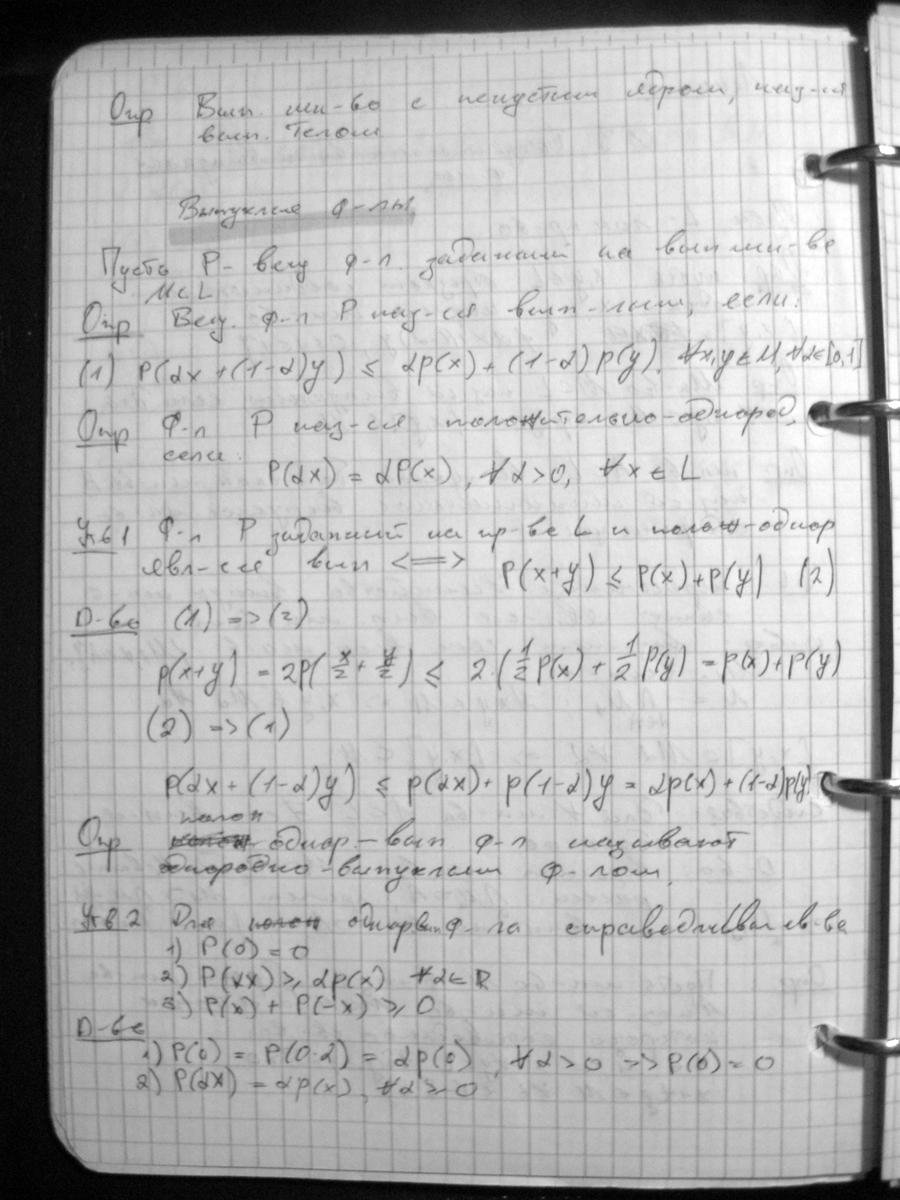 Опр Вып. мн-во с непустым ядром, наз-ся
вып. телом
Выпуклые ф-лы
Пусть P - вещ ф-л. заданный на вып мн-ве
M⊂L
Опр Вещ. ф-л P наз-ся вып-лым, если:
(1) P(αx + (1-α)y) ≤ αp(x) + (1-α)p(y), ∀x,y ∈ M, ∀α∈[0,1]
Опр Ф-л P наз-ся положительно-однород,
если:
P(αx) = αP(x), ∀α>0, ∀x ∈ L
Утв 1 Ф-л P заданный на пр-ве L и полож-однор
явл-ся вып <=> P(x+y) ≤ P(x)+P(y) (2)
Д-во (1) => (2)
p(x+y) = 2P(x/2 + y/2) ≤ 2·(1/2 P(x) + 1/2 P(y) = p(x)+P(y)
(2) => (1)
P(αx + (1-α)y) ≤ p(αx) + p(1-α)y = αp(x) + (1-α)p(y)
полож
Опр однор-вып ф-л называют
однородно-выпуклым ф-лом.
Утв 2 Для полож однорвып ф-ла справедливы св-ва
1) P(0) = 0
2) P(αx) ≥ αp(x) ∀α∈R
3) P(x) + P(-x) ≥ 0
Д-во
1) P(0) = P(0·α) = αp(0), ∀α>0 => P(0) = 0
2) P(αx) = αp(x), ∀α≥0